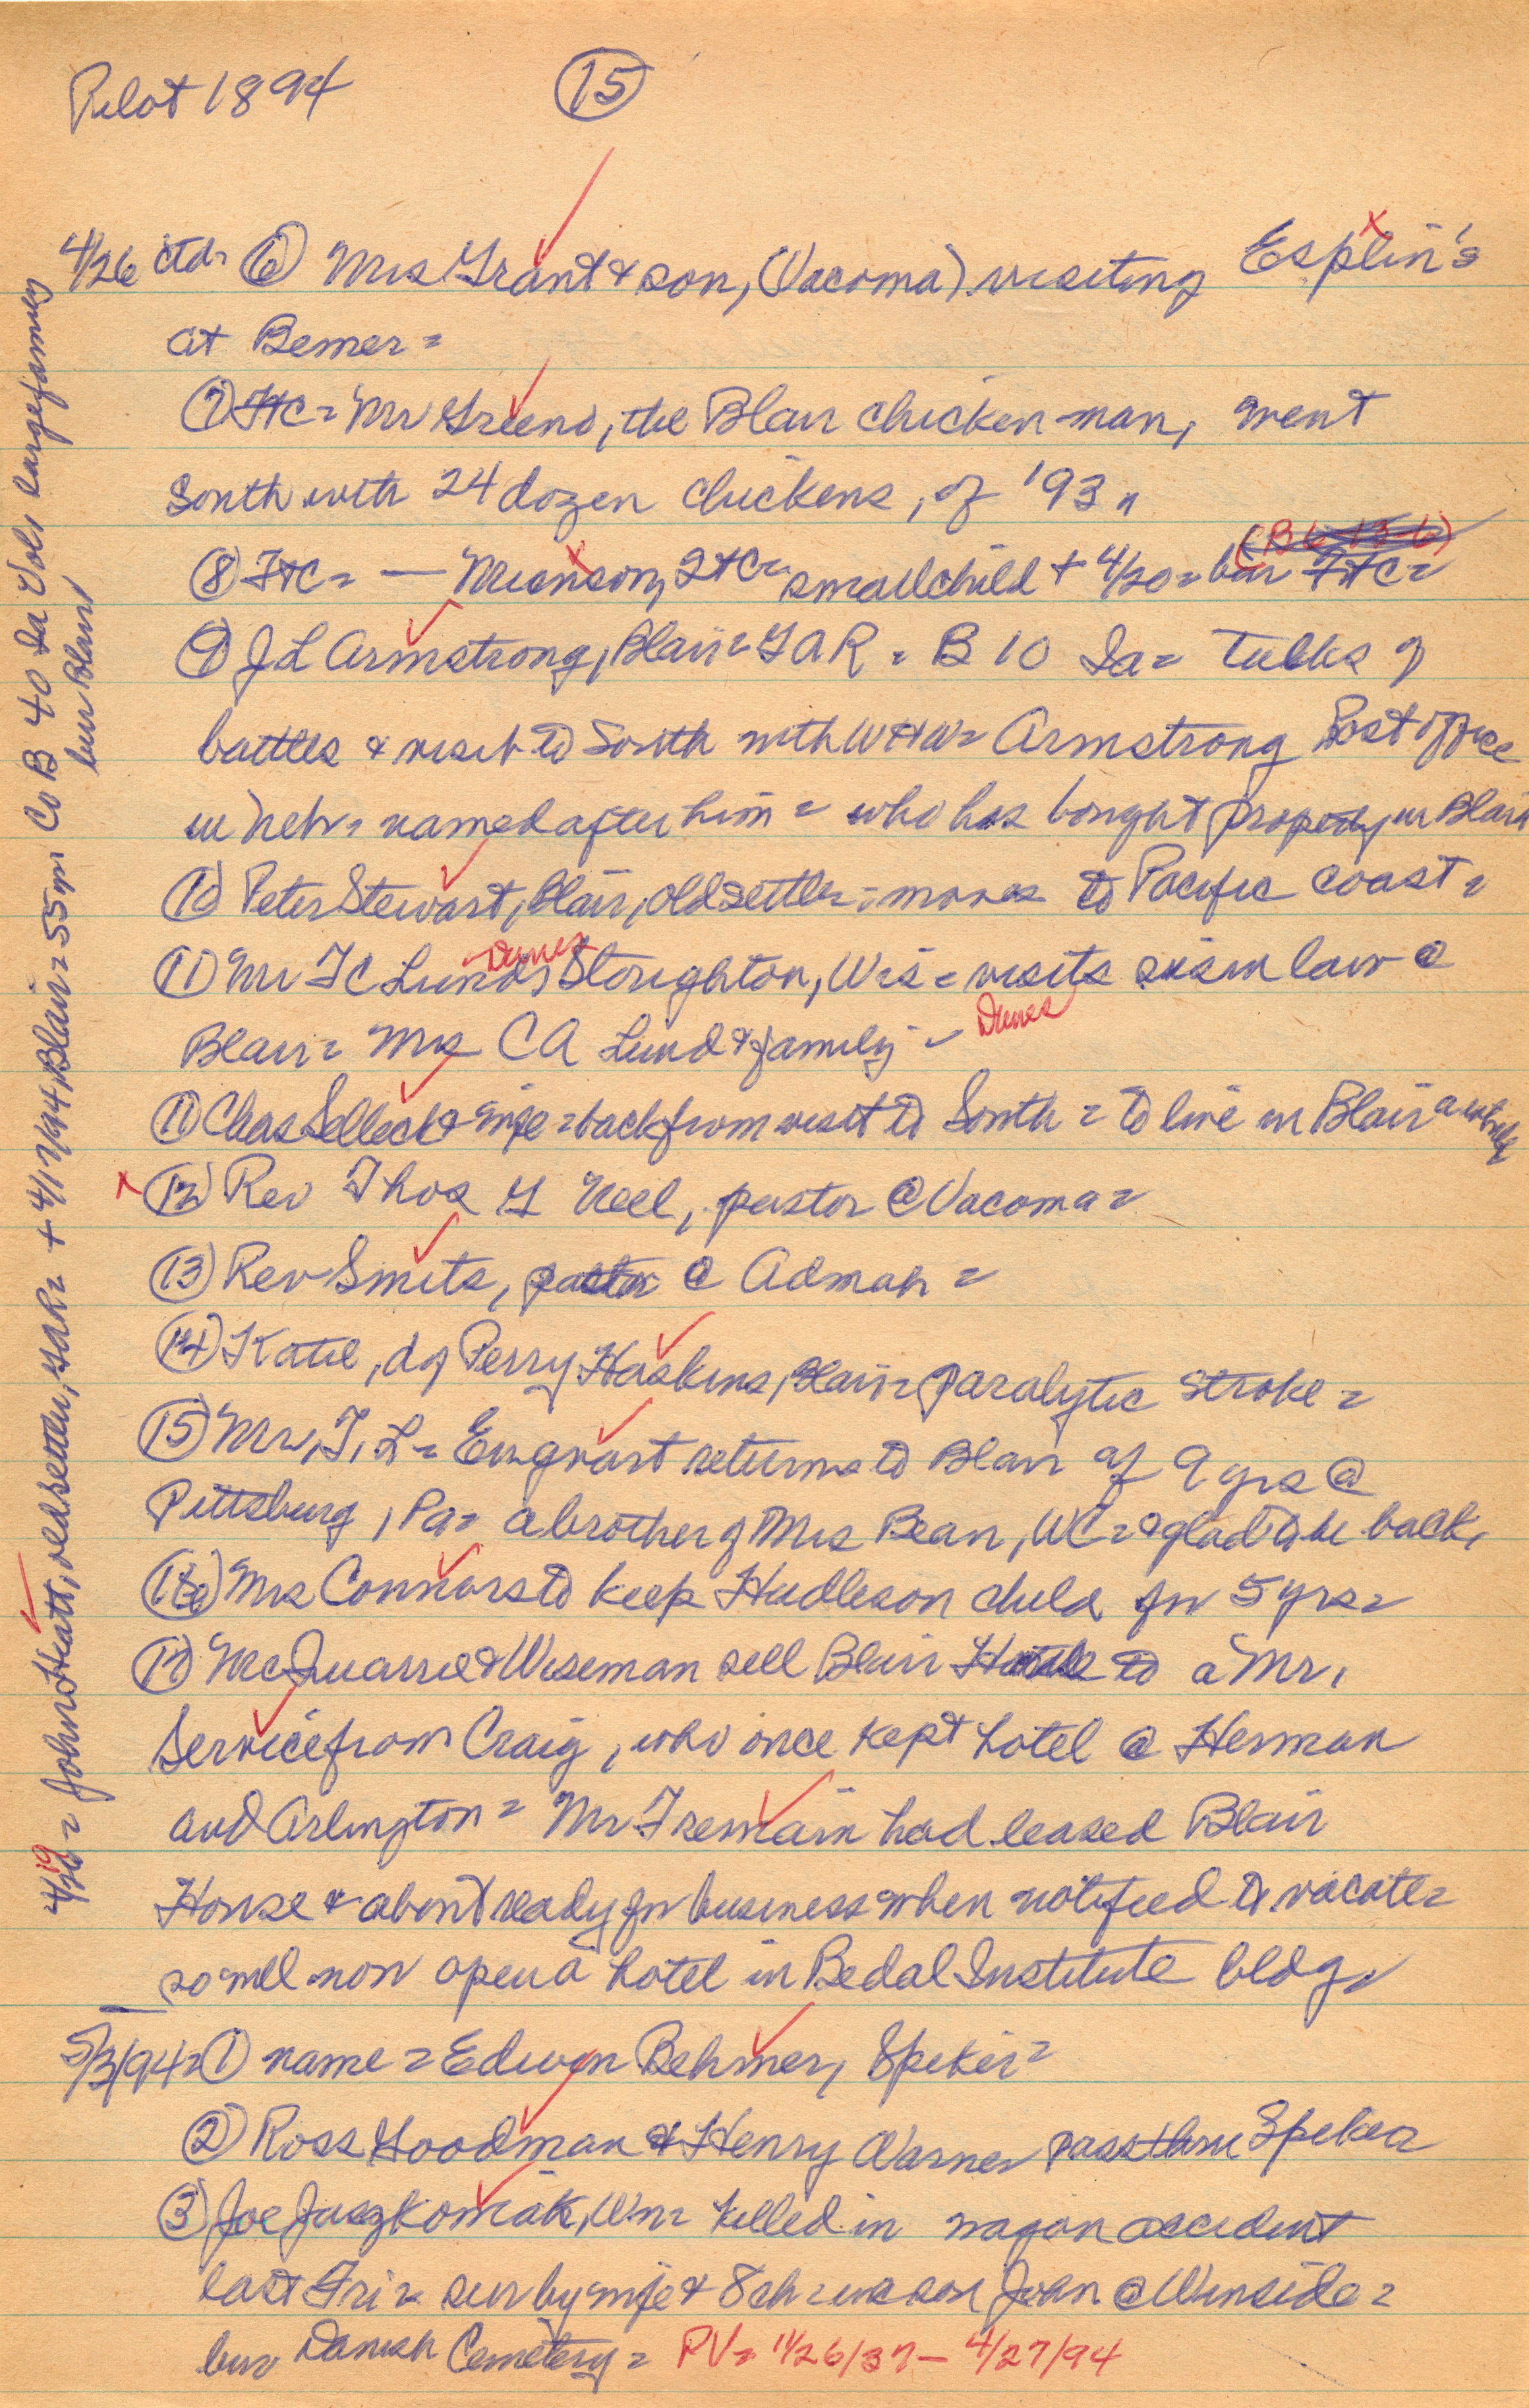 Pilot 1894
15
4/26 ctd= 6 Mrs Grant & son, (Vacoma) visiting Esplin's
at Bemer =
7 F+C = Mr Greeno, the Blair chicken man, went
South with 24 dozen chickens, of '93 =
8 F+C = — Munson, 2+C= small child + 4/20 = bur F+C=
(B 6-13-6)
9 J L Armstrong, Blair = GAR = B 10 Ia = Talks of
battles & visit to South with WHW= Armstrong Post office
in Neb = named after him = who has bought property in Blair
10 Peter Stewart, Blair, old settler = moves to Pacific coast =
11 Mr F C Lund, Stoughton, Wis = visits sis in law @
Danes
Blair = Mrs C A Lund & family - Danes
11 Chas Selleck & wife = back from visit to South = to live in Blair awhile
12 Rev Thos G Neel, pastor @ Vacoma =
13 Rev Smits, pastor @ Admah =
14 Katie, d of Perry Haskins, Blair = paralytic stroke =
15 Mr. T. L = returns to Blair af 9 yrs @
Pittsburg, Pa = a brother of Mrs Bean, WC = & glad to be back,
16 Mrs Connors to keep Hudleson child for 5 yrs =
17 McQuarrie & Wiseman sell Blair to a Mr.
Service from Craig, who once kept hotel @ Herman
and Arlington = Mr Tremain had leased Blair
House & about ready for business when notified to vacate =
so will now open a hotel in Bedal Institute bldg.
5/3/94 = 1 name = Edwin Behmer, Speker =
2 Ross Goodman & Henry Warner pass thru Speker
3 Joe Juszkowiak, Wm = killed in wagon accident
last Fri = sur by wife & 8 ch = inc son John @ Winside =
bur Danish Cemetery = PV = 11/26/37 - 4/27/94
4/19 = John Hiatt, old settler, GAR = + 4/17/94, Blair = 55 yrs Co B 40 Ia Vols large family
bur Blair